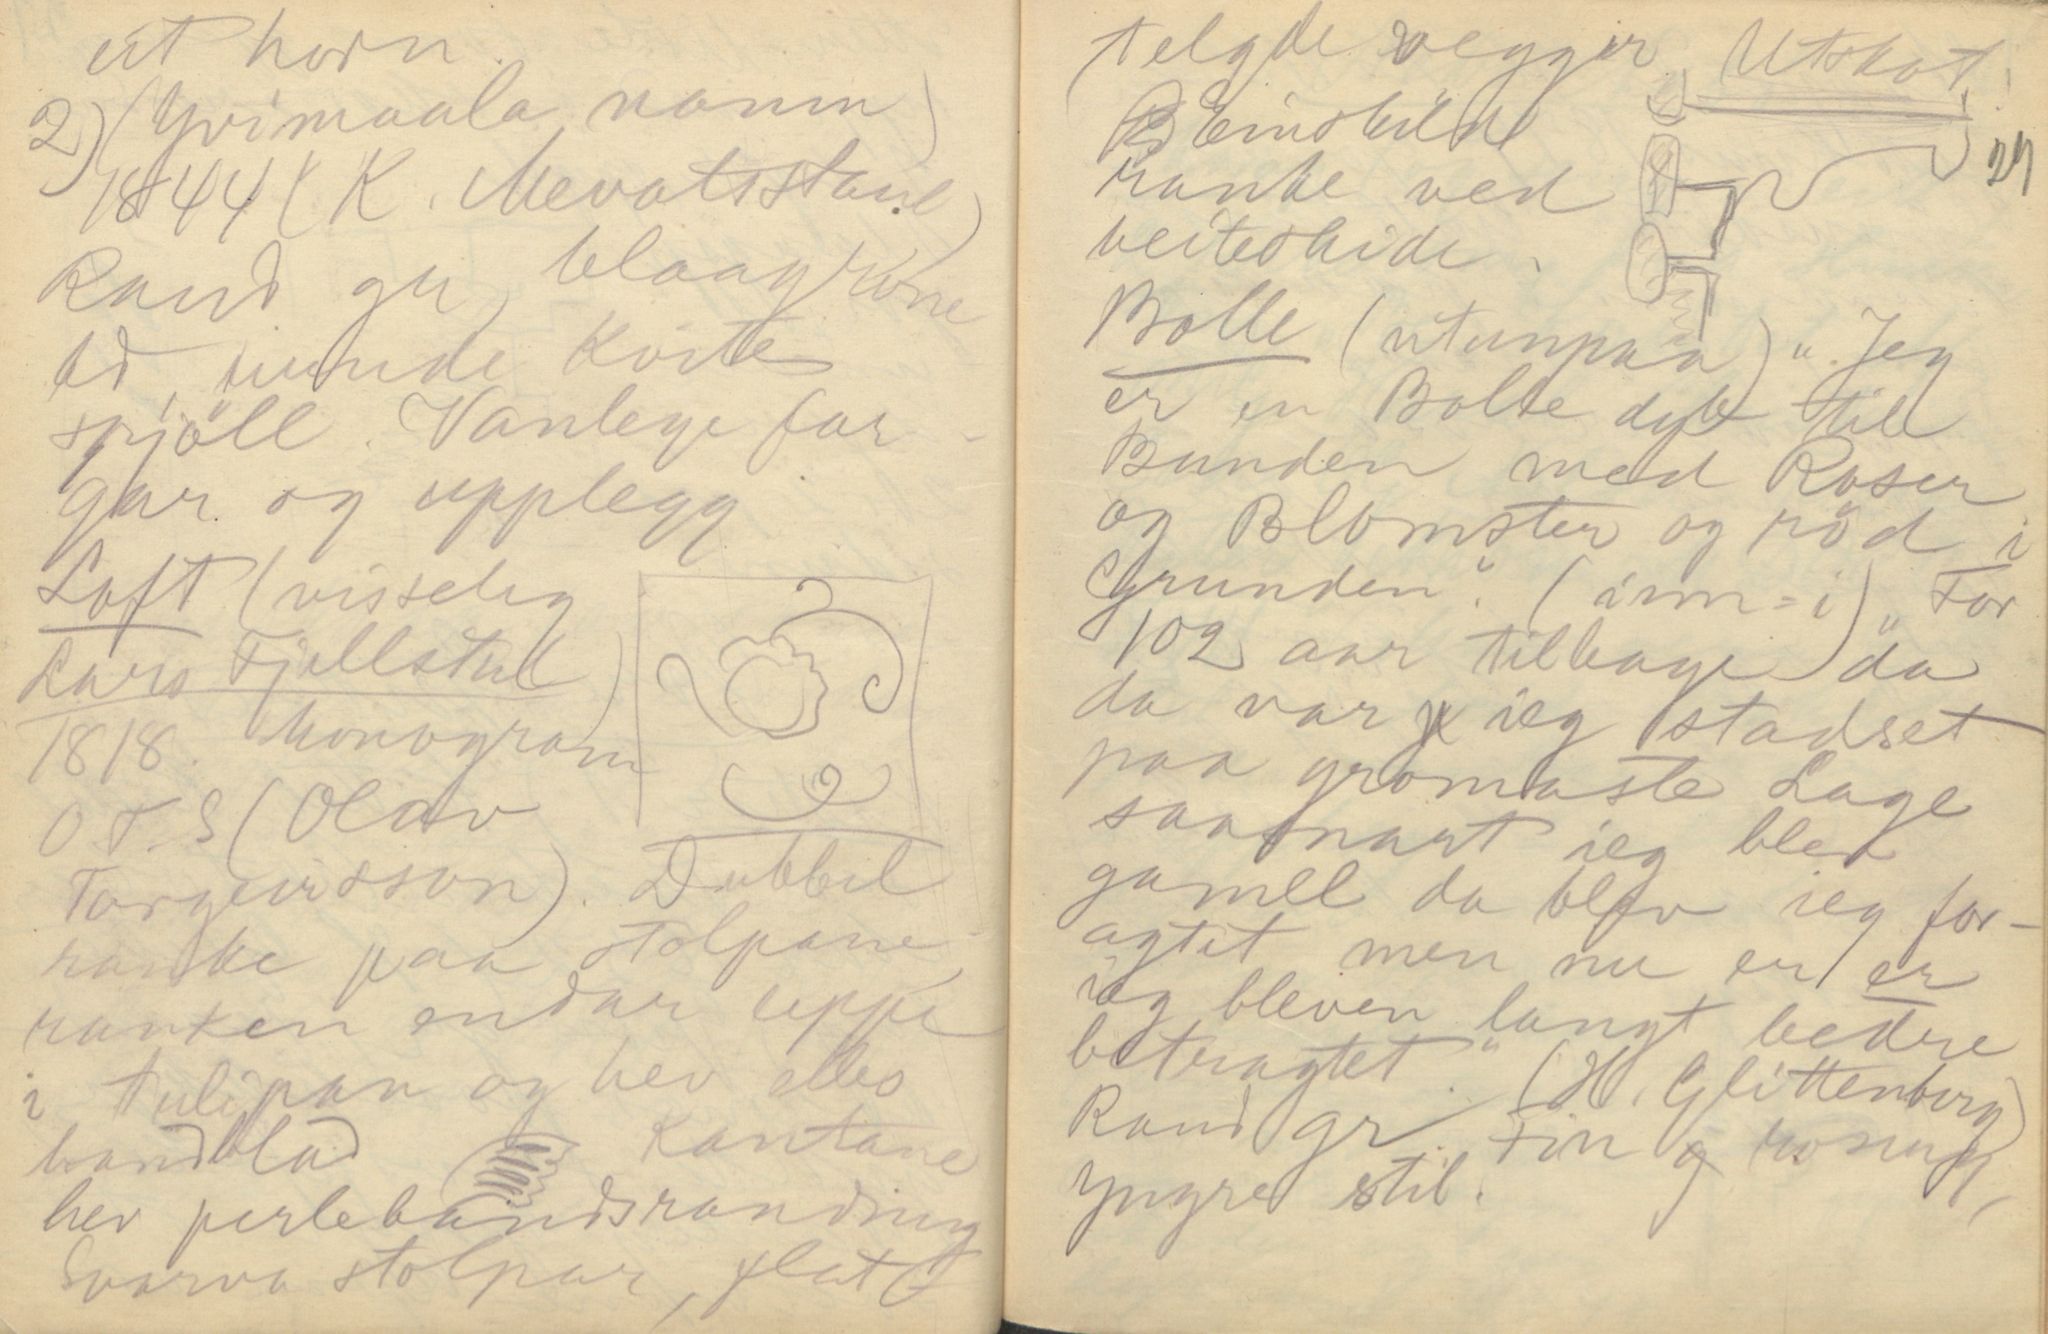 eit horn.
2) (Yvimaala, namn)
1844 (K. Mevatsstaul)
Rand gr, blaagrøne
bd, runde kvite
spjøll. Vanlege far-
gar og upplegg
Loft (visseleg
Lars Fjellstul)
1818. Monogram
O.T.S (Olav
Torgeirsson). Dubbel
ranke paa stolpane,
ranken endar uppe
i tulipan og hev elles
bandblad Kantane
hev perlebandsranding
Svarva stolpar, flat-
telgde vegger. Utskot.
Beinskild 27
ranke ved
beiteskidi.
Bolle (utunpaa) "Jeg
er en Bolle dyb till
Bunden med Roser
og Blomster og rød i
Grunden". (inn-i) "For
102 aar tilbage da
da var ieg stadset
paa gromaste Lage
saasnart ieg blev
gamell da blev ieg for-
agtet men nu er er
ieg bleven langt bedre
betragtet". (H. Glittenberg)
Rand gr. Fin og
yngre stil.